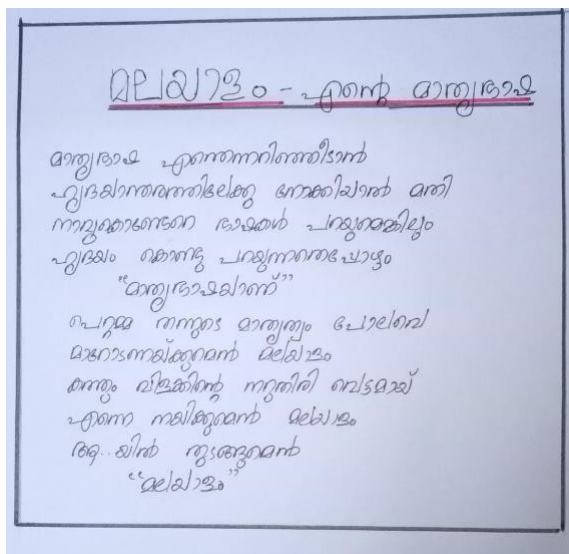 മലയാളം - എന്റെ മാതൃഭാഷ
മാതൃഭാഷ എന്തെന്നറിഞ്ഞീടാൻ
ഹൃദയാന്തരത്തിലേക്കു നോക്കിയാൽ മതി
നാവുകൊണ്ടേറെ ഭാഷകൾ പറയുമെങ്കിലും
ഹൃദയം കൊണ്ടു പറയുന്നതെപ്പോഴും
"മാതൃഭാഷയാണ്"
പെറ്റമ്മ തന്നുടെ മാതൃത്വം പോലവെ
മാറോടണയ്ക്കുമെൻ മലയാളം
കത്തും വിളക്കിന്റെ നറുതിരി വെട്ടമായ്
എന്നെ നയിക്കുമെൻ മലയാളം
ആ..യിൽ തുടങ്ങുമെൻ
"മലയാളം"